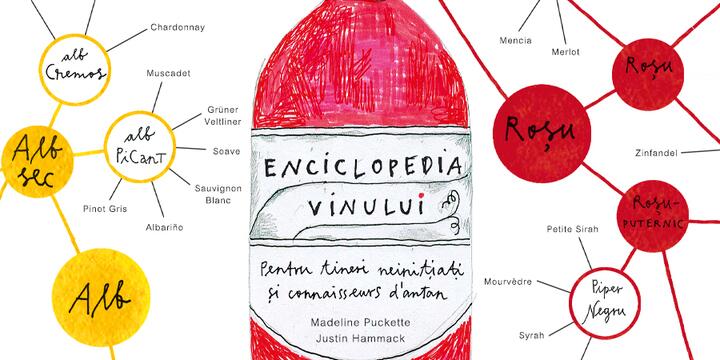 Chardonnay
alb
Cremos
Muscadet
Grüner
Veltliner
alb
PiCanT
Soave
Alb
sec
Sauvignon
Blanc
Pinot Gris
Albariño
Alb
ENCICLOPEDIA
VINULUI
Pentru tineri neinițiați
și connaisseurs d'antan
Madeline Puckette
Justin Hammack
Mencia
Merlot
Roșu
Roșu
Zinfandel
Roșu-
PUTERNIC
Petite Sirah
Mourvèdre
Piper
Negru
Syrah